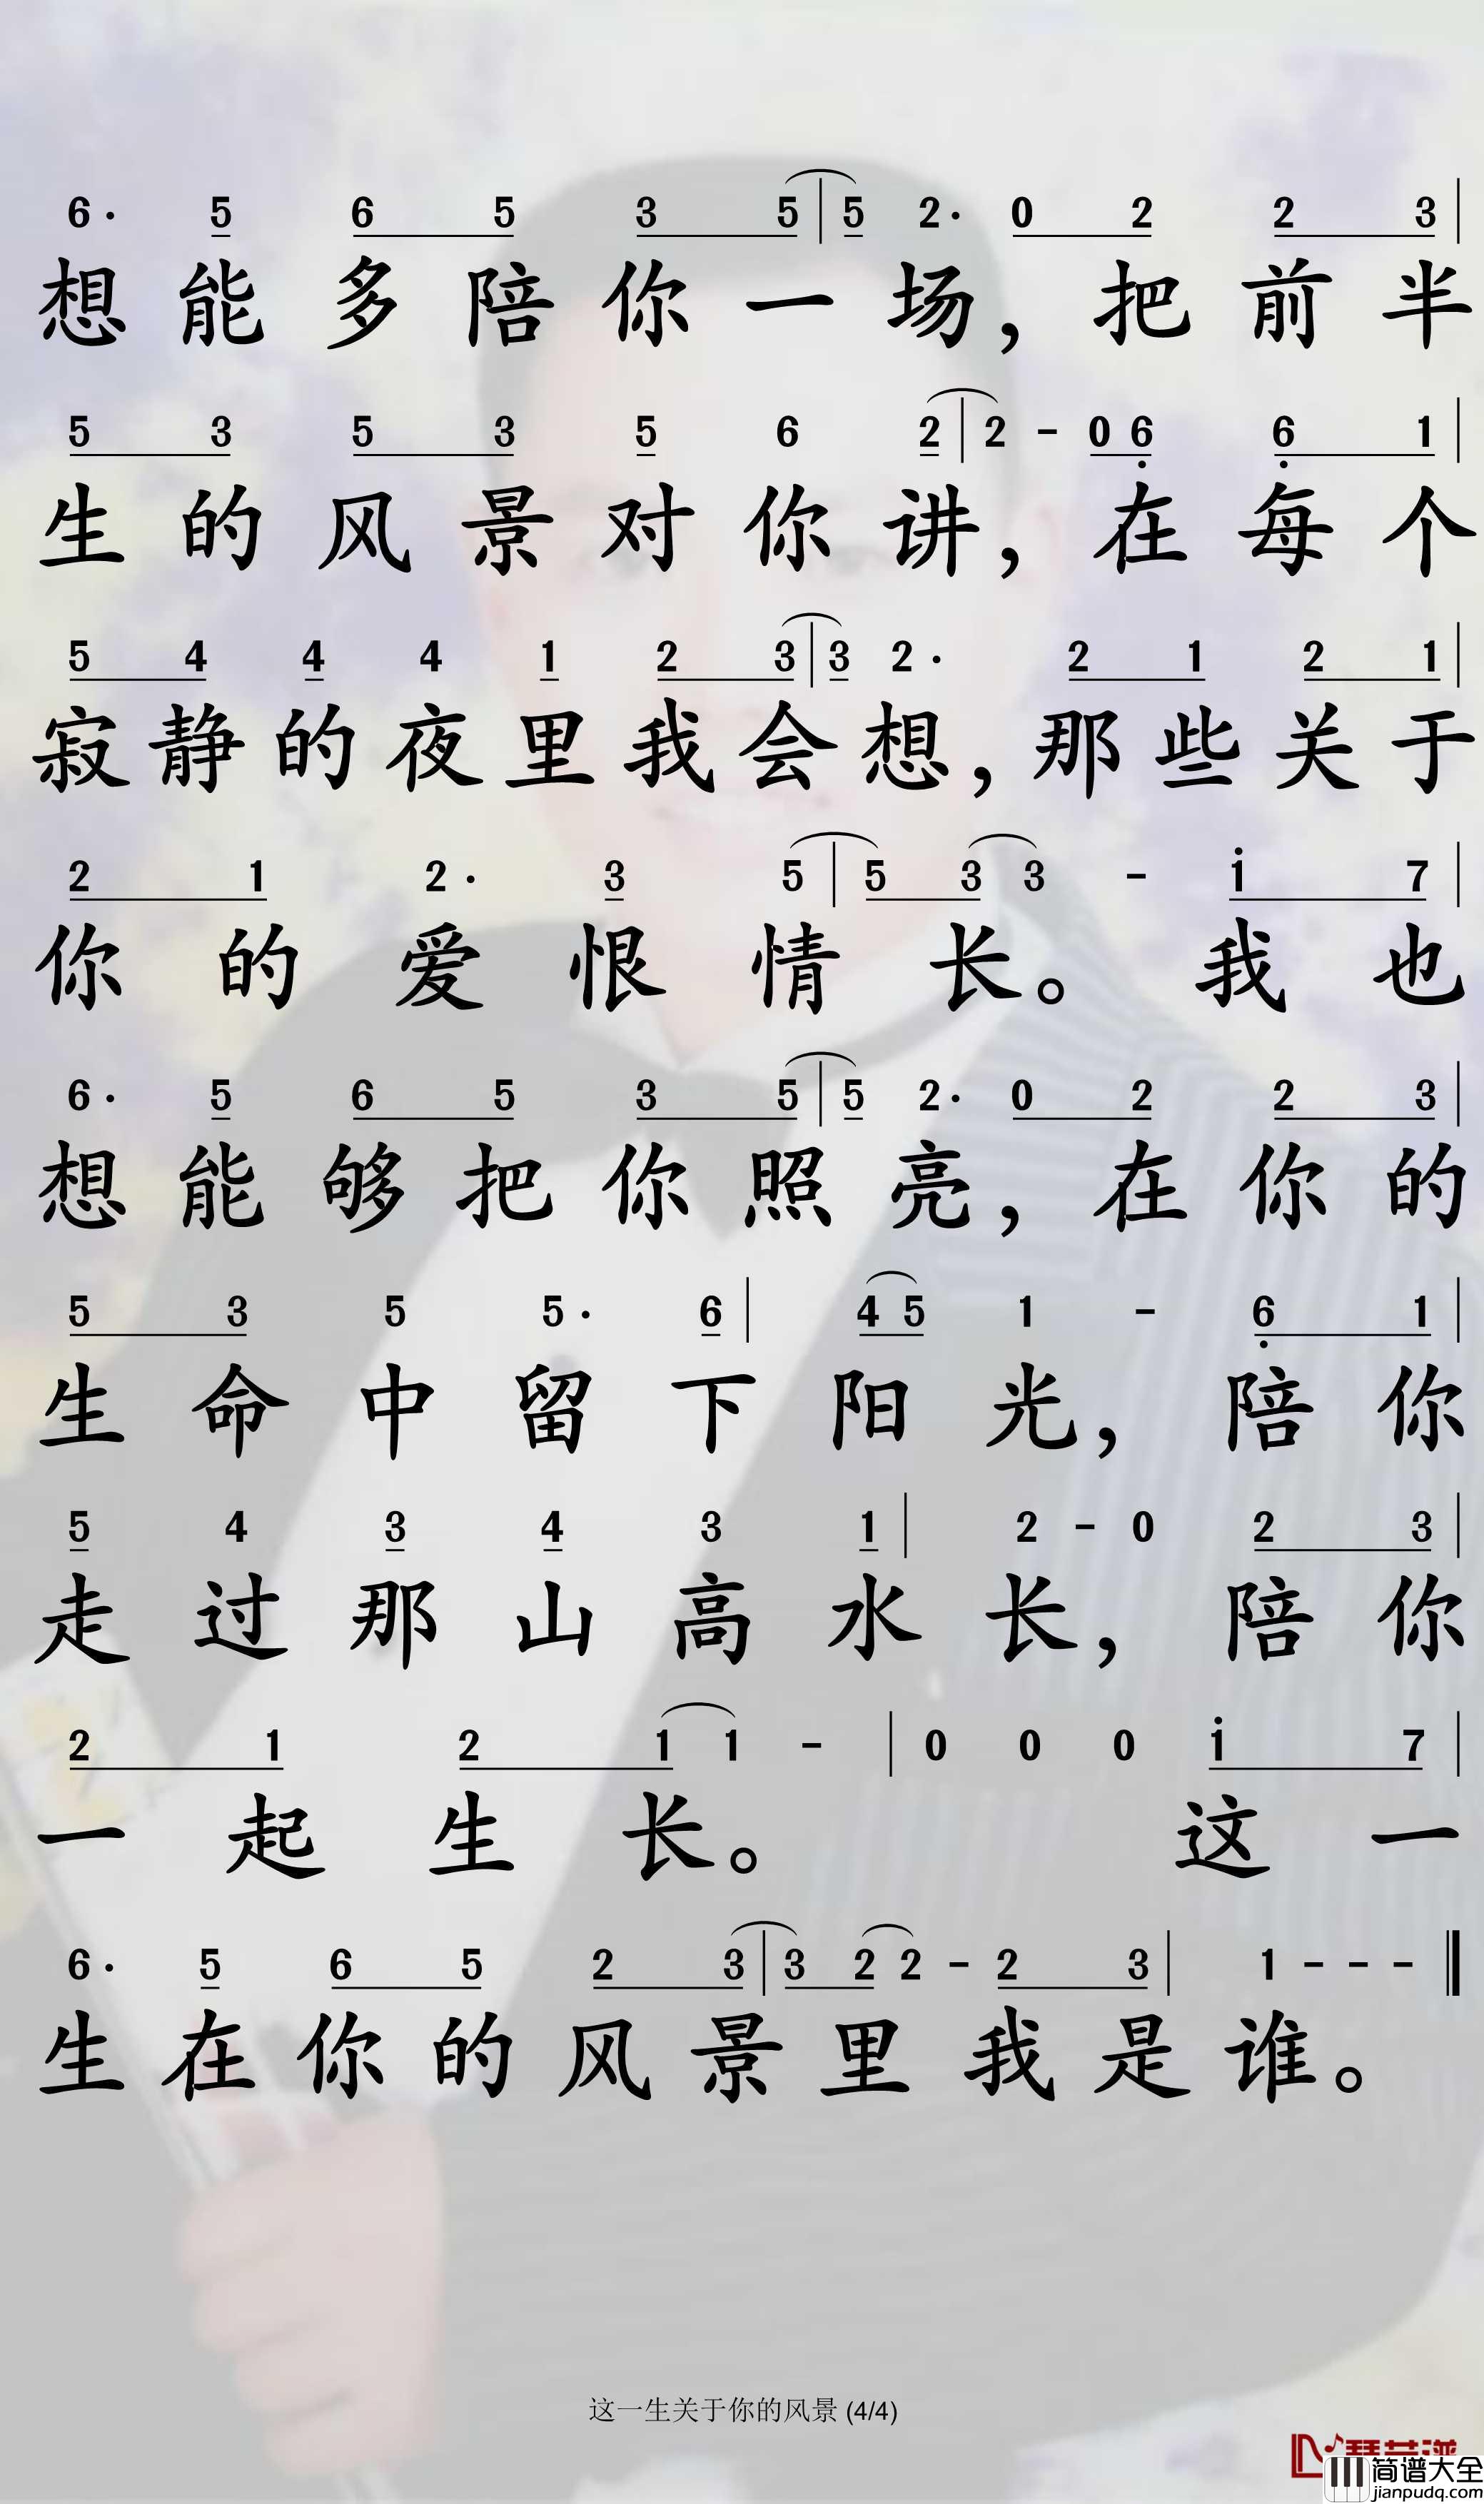 6· 5 6 5 3 5 | 5 2· 0 2 2 3 |
想能多陪你一场，把前半
5 3 5 3 5 6 2 | 2 - 0 6̣ 6̣ 1 |
生的风景对你讲，在每个
5 4 4 4 1 2 3 | 3 2· 2 1 2 1 |
寂静的夜里我会想，那些关于
2 1 2· 3 5 | 5 3 3 - 1̇ 7 |
你的爱恨情长。我也
6· 5 6 5 3 5 | 5 2· 0 2 2 3 |
想能够把你照亮，在你的
5 3 5 5· 6 | 4 5 1 - 6̣ 1 |
生命中留下阳光，陪你
5 4 3 4 3 1 | 2 - 0 2 3 |
走过那山高水长，陪你
2 1 2 1 1 - | 0 0 0 1̇ 7 |
一起生长。这一
6· 5 6 5 2 3 | 3 2 2 - 2 3 | 1 - - - ‖
生在你的风景里我是谁。
这一生关于你的风景 (4/4)
简谱大全
jianpudq.com